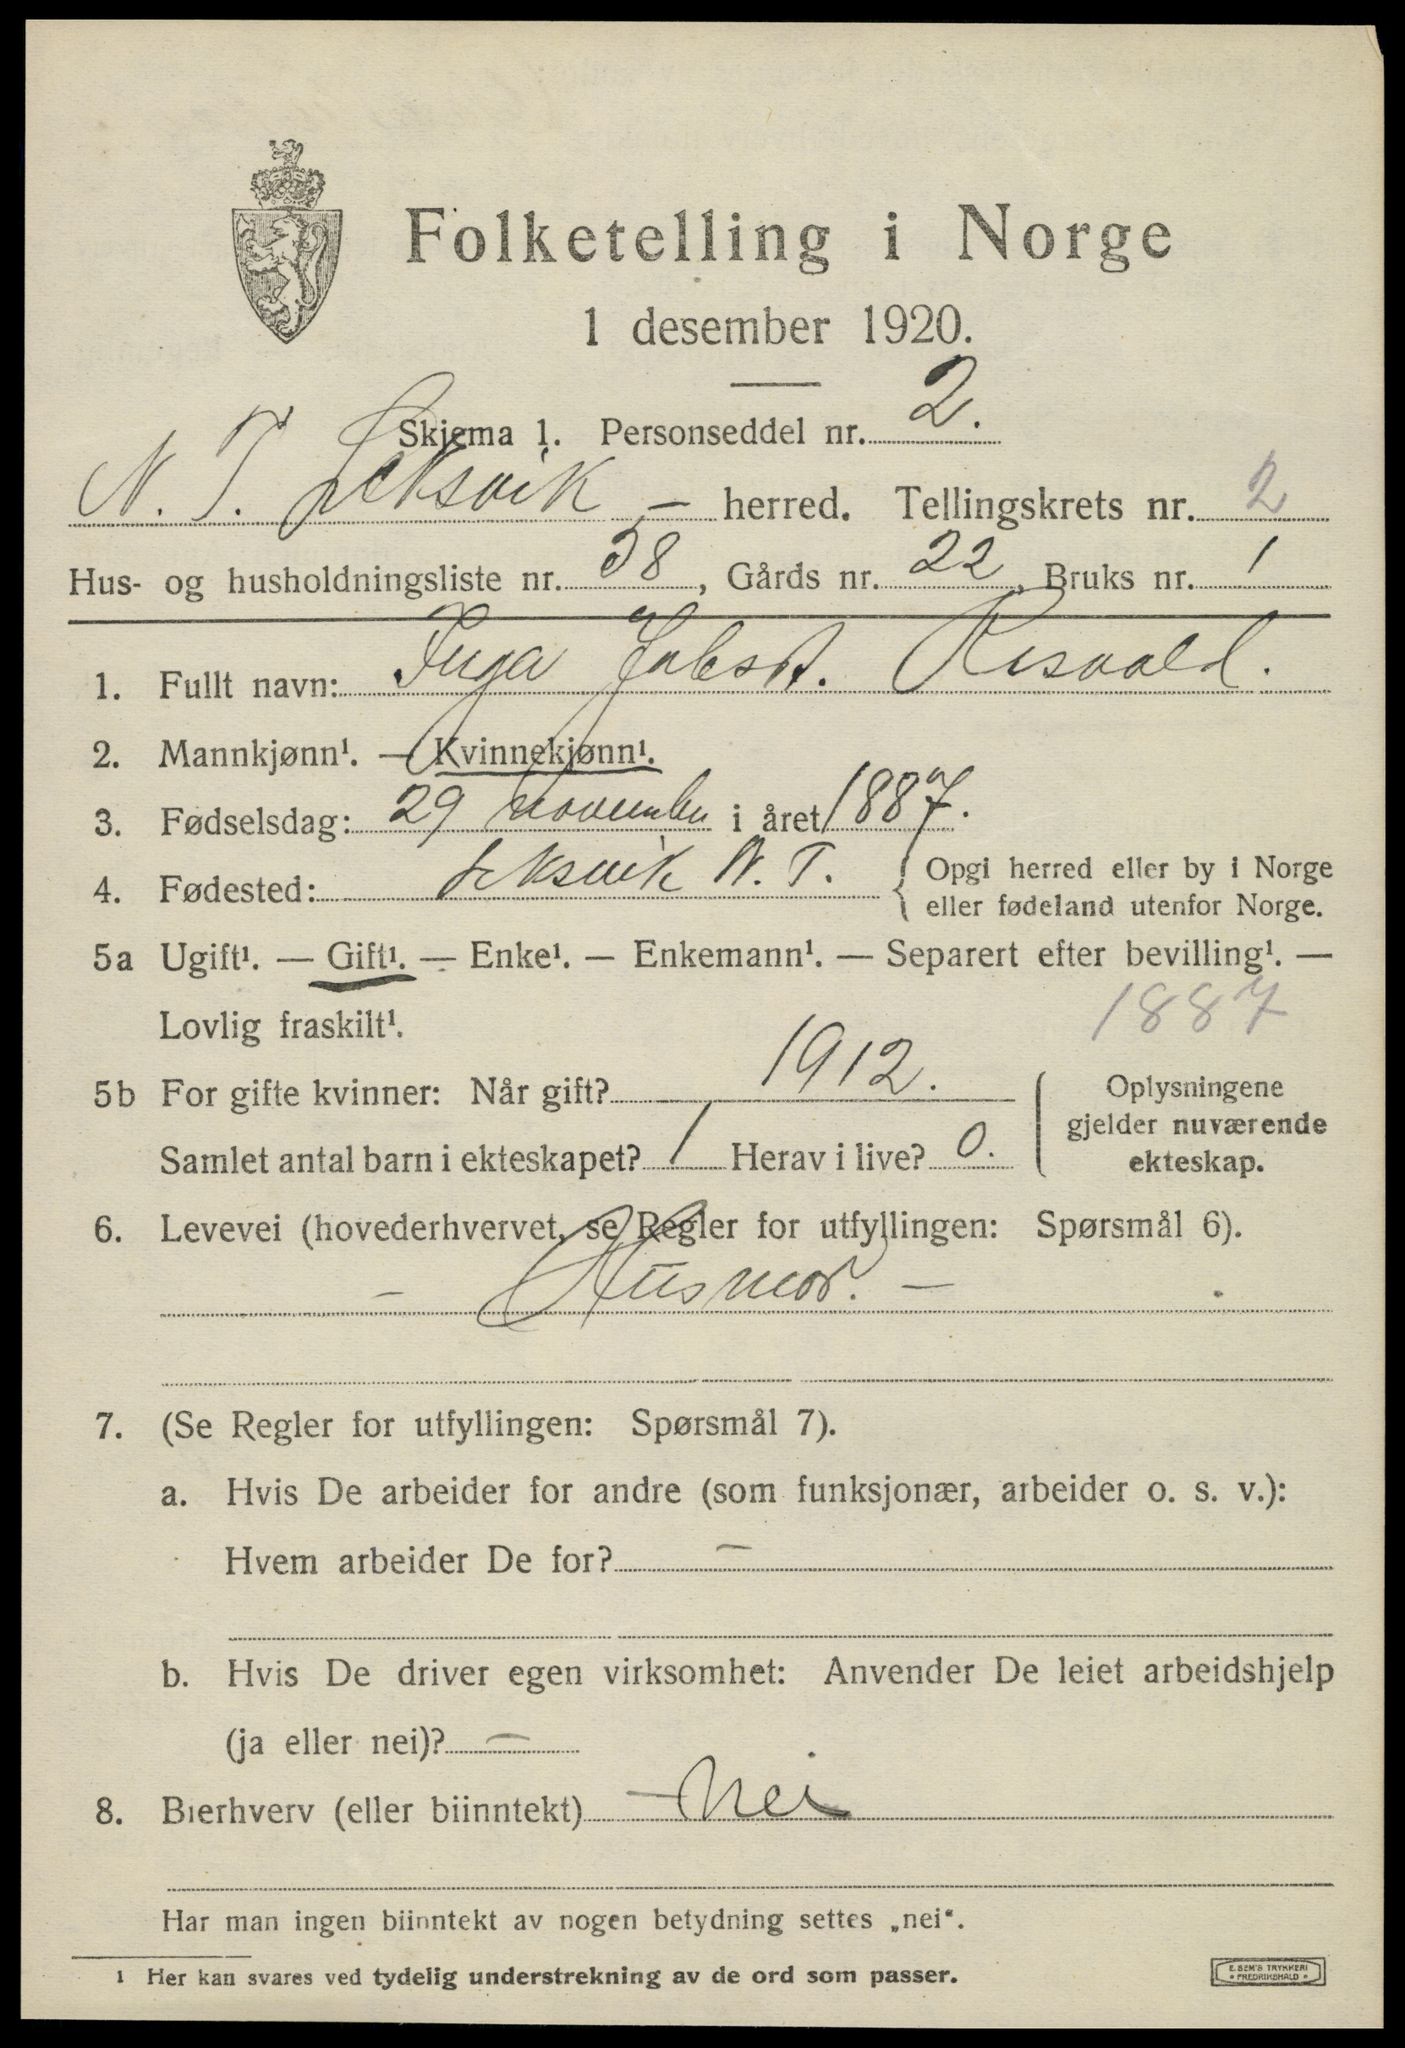 Folketelling i Norge
1 desember 1920.
Skjema 1. Personseddel nr. 2.
N. T. Leksvik – herred. Tellingskrets nr. 2
Hus- og husholdningsliste nr. 38, Gårds nr. 22, Bruks nr. 1
1. Fullt navn: Inga Risvald.
2. Mannkjønn¹. — Kvinnekjønn¹.
3. Fødselsdag: 29 november i året 1887.
4. Fødested: Leksvik N. T. { Opgi herred eller by i Norge
eller fødeland utenfor Norge.
5a Ugift¹. — Gift¹. — Enke¹. — Enkemann¹. — Separert efter bevilling¹. —
Lovlig fraskilt¹. 1887
5b For gifte kvinner: Når gift? 1912.
Samlet antal barn i ekteskapet? 1 Herav i live? 0.
Oplysningene
gjelder nuværende
ekteskap.
6. Levevei (hovederhvervet, se Regler for utfyllingen: Spørsmål 6).
– Husmor. –
7. (Se Regler for utfyllingen: Spørsmål 7).
a. Hvis De arbeider for andre (som funksjonær, arbeider o. s. v.):
Hvem arbeider De for? –
b. Hvis De driver egen virksomhet: Anvender De leiet arbeidshjelp
(ja eller nei)? –
8. Bierhverv (eller biinntekt) – Nei
Har man ingen biinntekt av nogen betydning settes „nei“.
1 Her kan svares ved tydelig understrekning av de ord som passer.
E. SEM'S TRYKKERI
• FREDRIKSHALD •